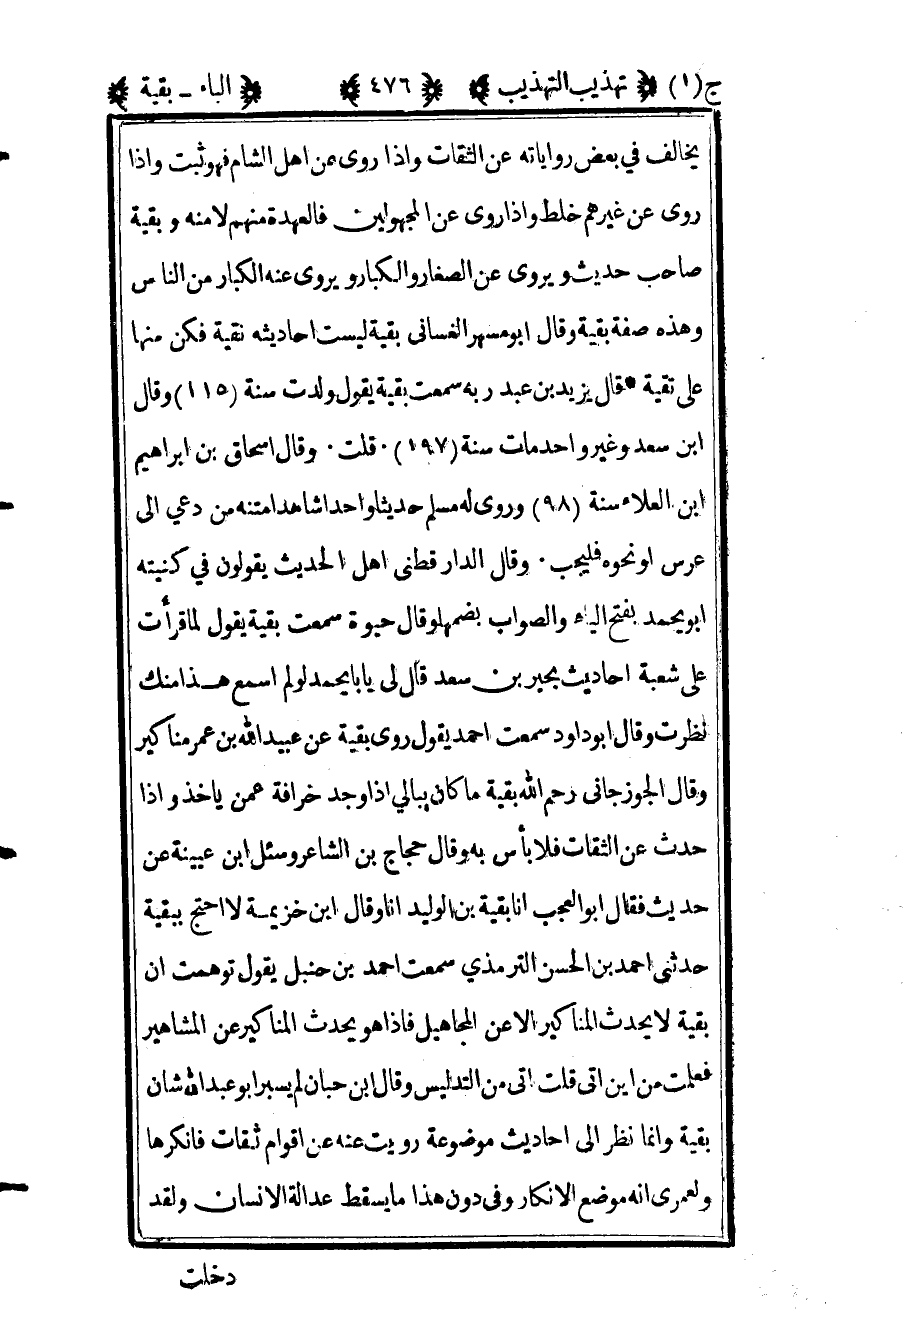 ج(١) تهذيب التهذيب ٤٧٦ الباء ـ بقية
يخالف في بعض رواياته عن الثقات واذا روى عن اهل الشام فهو ثبت واذا
روى عن غيرهم خلط واذا روى عن المجهولين فالعهدة منهم لا منه و بقية
صاحب حديث و يروى عن الصغار والكبار و يروى عنه الكبار من الناس
وهذه صفة بقية وقال ابو مسهر الغسانى بقية ليست احاديثه نقية فكن منها
على تقية • قال يزيد بن عبد ربه سمعت بقية يقول ولدت سنة (١١٥) وقال
ابن سعد وغير واحد مات سنة (١٩٧) · قلت · وقال اسحاق بن ابراهيم
ابن العلاء سنة (٩٨) وروى له مسلم حديثا واحدا شاهدا متنه من دعي الى
عرس او نحوه فليجب · وقال الدار قطنى اهل الحديث يقولون في كنيته
ابو يحمد بفتح الياء والصواب بضمها وقال حيوة سمعت بقية يقول لما قرأت
على شعبة احاديث بحير بن سعد قال لى يا با يحمد لو لم اسمع هذا منك
لطرت وقال ابو داود سمعت احمد يقول روى بقية عن عبيد الله بن عمر مناكير
وقال الجوزجانى رحم الله بقية ما كان يبالي اذا وجد خرافة عمن ياخذ و اذا
حدث عن الثقات فلا بأس به وقال حجاج بن الشاعر وسئل ابن عيينة عن
حديث فقال ابو العجب انا بقية بن الوليد انا وقال ابن خزيمة لا احتج ببقية
حدثنى احمد بن الحسن الترمذي سمعت احمد بن حنبل يقول توهمت ان
بقية لا يحدث المناكير الا عن المجاهيل فاذا هو يحدث المناكير عن المشاهير
فعلمت من اين اتى قلت اتى من التدليس وقال ابن حبان لم يسبر ابو عبدالله شان
بقية وانما نظر الى احاديث موضوعة رويت عنه عن اقوام ثقات فانكرها
ولعمرى انه موضع الانكار وفى دون هذا ما يسقط عدالة الانسان ولقد
دخلت